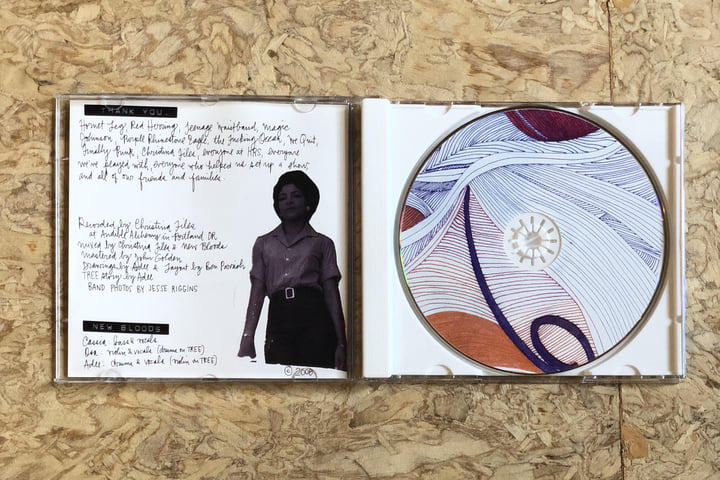 THANK YOU.
Hornet Leg, Red Herring, Teenage Waistband, Magic
Johnson, Purple Rhinestone Eagle, the Fucking Ocean, Mt Quit,
Finally Punk, Christina Files, everyone at KRS, everyone
we've played with, everyone who helped us set up a show
and all of our friends and families.
Recorded by Christina Files
at Audible Alchemy in Portland OR
mixed by Christina Files & New Bloods
mastered by John Golden
Drawings by Adee & Layout by Ben
TREE story by Adee
BAND PHOTOS BY JESSE RIGGINS
NEW BLOODS
Cassia: bass & vocals
Osa: violin & vocals (drums on TREE)
Adee: drums & vocals (violin on TREE)
© 2008